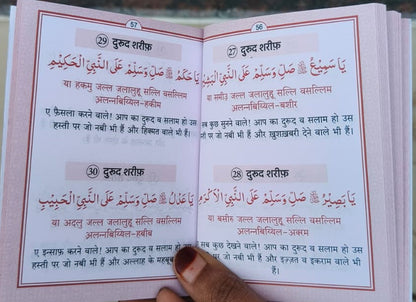 57
29 दुरूद शरीफ़
يَا حَكَمُ ﷻ صَلِّ وَسَلِّمْ عَلَى النَّبِيِّ الْحَكِيْمِ
या हकमु जल्ल जलालुहू सल्लि वसल्लिम
अलन्नबिय्यिल-हकीम
ए फ़ैसला करने वाले! आप का दुरूद व सलाम हो उस
हस्ती पर जो नबी भी हैं और हिक्मत वाले भी हैं।
30 दुरूद शरीफ़
يَا عَدْلُ ﷻ صَلِّ وَسَلِّمْ عَلَى النَّبِيِّ الْحَبِيْبِ
या अदलु जल्ल जलालुहू सल्लि वसल्लिम
अलन्नबिय्यिल-हबीब
ए इन्साफ़ करने वाले! आप का दुरूद व सलाम हो
हस्ती पर जो नबी भी हैं और अल्लाह के महबूब
56
27 दुरूद शरीफ़
يَا سَمِيْعُ ﷻ صَلِّ وَسَلِّمْ عَلَى النَّبِيِّ
या समीउ जल्ल जलालुहू सल्लि वसल्लिम
अलन्नबिय्यिल-बशीर
सब कुछ सुनने वाले! आप का दुरूद व सलाम हो उस
हस्ती पर जो नबी भी हैं और खुशख़बरी देने वाले भी हैं।
28 दुरूद शरीफ़
يَا بَصِيْرُ ﷻ صَلِّ وَسَلِّمْ عَلَى النَّبِيِّ الْاَكْرَمِ
या बसीरु जल्ल जलालुहू सल्लि वसल्लिम
अलन्नबिय्यिल-अकरम
सब कुछ देखने वाले! आप का दुरूद व सलाम हो उस
हस्ती पर जो नबी भी हैं और इज़्ज़त व इकराम वाले भी
हैं।